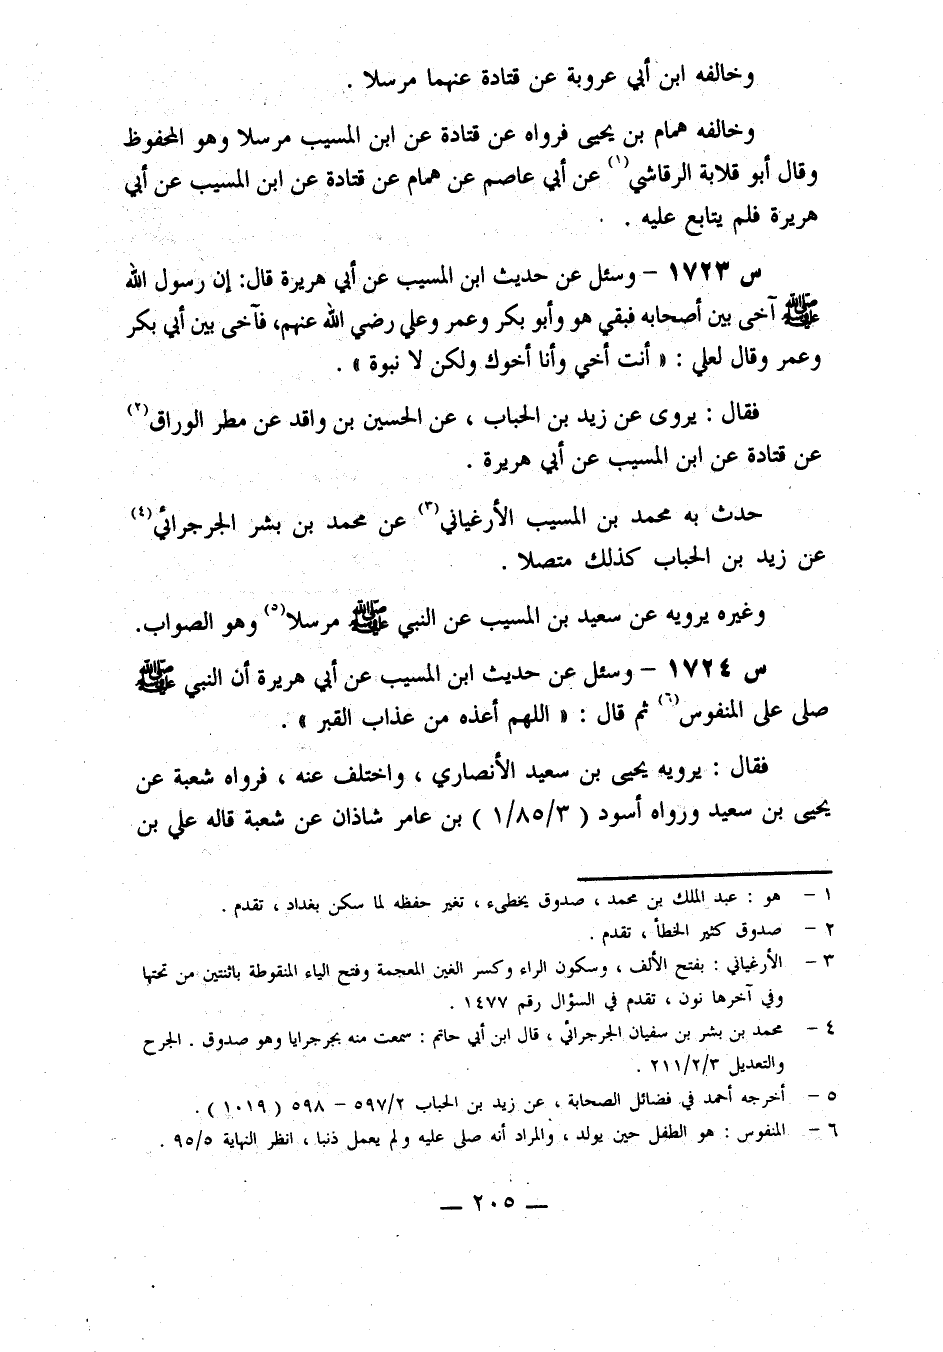 وخالفه ابن أبي عروبة عن قتادة عنهما مرسلا .
وخالفه همام بن يحيى فرواه عن قتادة عن ابن المسيب مرسلا وهو المحفوظ
وقال أبو قلابة الرقاشي(١) عن أبي عاصم عن همام عن قتادة عن ابن المسيب عن أبي
هريرة فلم يتابع عليه .
س ١٧٢٣ – وسئل عن حديث ابن المسيب عن أبي هريرة قال: إن رسول الله
ﷺ آخى بين أصحابه فبقي هو وأبو بكر وعمر وعلي رضي الله عنهم، فآخى بين أبي بكر
وعمر وقال لعلي : « أنت أخي وأنا أخوك ولكن لا نبوة » .
فقال : يروى عن زيد بن الحباب ، عن الحسين بن واقد عن مطر الوراق(٢)
عن قتادة عن ابن المسيب عن أبي هريرة .
حدث به محمد بن المسيب الأرغياني(٣) عن محمد بن بشر الجرجرائي(٤)
عن زيد بن الحباب كذلك متصلا .
وغيره يرويه عن سعيد بن المسيب عن النبي ﷺ مرسلا(٥) وهو الصواب.
س ١٧٢٤ – وسئل عن حديث ابن المسيب عن أبي هريرة أن النبي ﷺ
صلى على المنفوس(٦) ثم قال : « اللهم أعذه من عذاب القبر » .
فقال : يرويه يحيى بن سعيد الأنصاري ، واختلف عنه ، فرواه شعبة عن
يحيى بن سعيد ورواه أسود ( ١/٨٥/٣ ) بن عامر شاذان عن شعبة قاله علي بن
١ – هو : عبد الملك بن محمد ، صدوق يخطىء ، تغير حفظه لما سكن بغداد ، تقدم .
٢ – صدوق كثير الخطأ ، تقدم .
٣ – الأرغياني : بفتح الألف ، وسكون الراء وكسر الغين المعجمة وفتح الياء المنقوطة باثنتين من تحتها
وفي آخرها نون ، تقدم في السؤال رقم ١٤٧٧ .
٤ – محمد بن بشر بن سفيان الجرجرائي ، قال ابن أبي حاتم : سمعت منه بجرجرايا وهو صدوق . الجرح
والتعديل ٢١١/٢/٣ .
٥ – أخرجه أحمد في فضائل الصحابة ، عن زيد بن الحباب ٥٩٧/٢ – ٥٩٨ ( ١٠١٩ ) .
٦ – المنفوس : هو الطفل حين يولد ، والمراد أنه صلى عليه ولم يعمل ذنبا ، انظر النهاية ٩٥/٥ .
— ٢٠٥ —